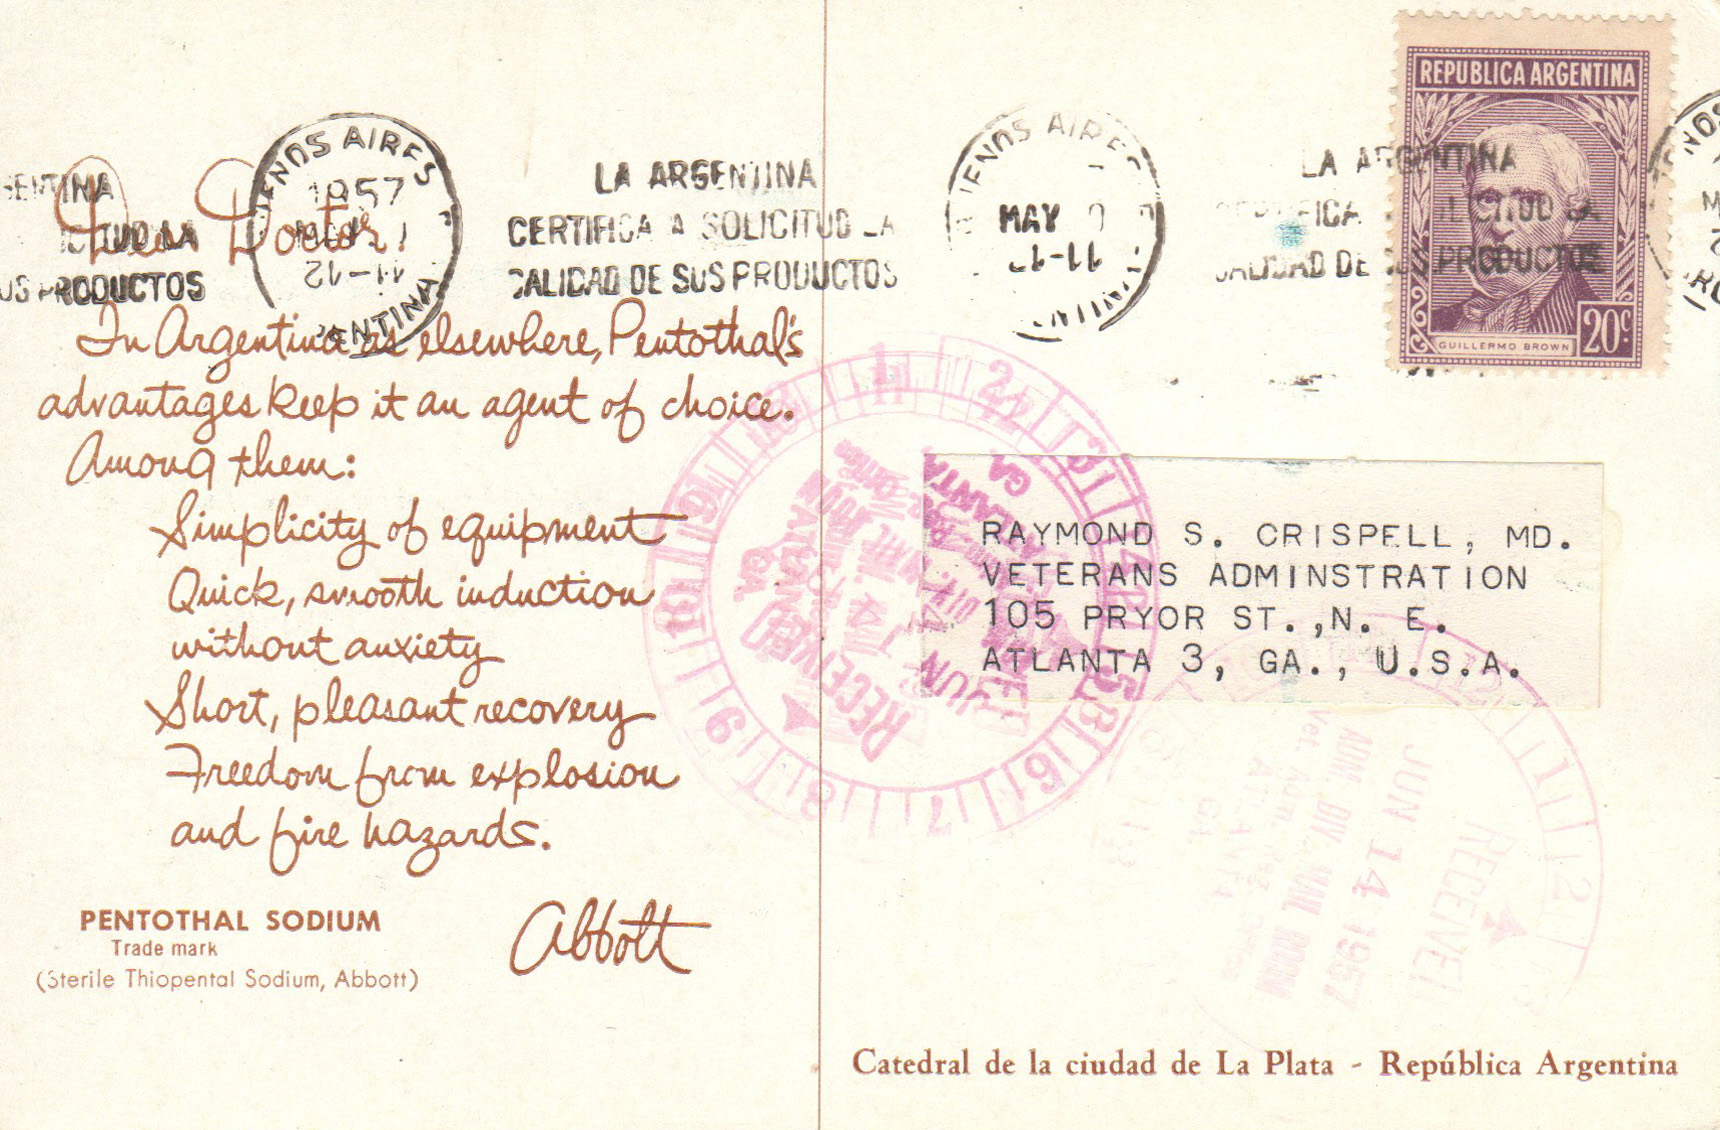 REPUBLICA ARGENTINA
GUILLERMO BROWN
20c
BUENOS AIRES
1957
12-11
ARGENTINA
LA ARGENTINA
CERTIFICA A SOLICITUD LA
CALIDAD DE SUS PRODUCTOS
BUENOS AIRES
MAY
LA ARGENTINA
CERTIFICA A SOLICITUD LA
CALIDAD DE SUS PRODUCTOS
GENTINA
ICITUD LA
US PRODUCTOS
Dear Doctor:
In Argentina as elsewhere, Pentothal's
advantages keep it an agent of choice.
Among them:
Simplicity of equipment
Quick, smooth induction
without anxiety
Short, pleasant recovery
Freedom from explosion
and fire hazards.
Abbott
PENTOTHAL SODIUM
Trade mark
(Sterile Thiopental Sodium, Abbott)
RAYMOND S. CRISPELL, MD.
VETERANS ADMINSTRATION
105 PRYOR ST.,N. E.
ATLANTA 3, GA., U.S.A.
RECEIVED
JUN
ATLANTA
GA.
RECEIVED
JUN 14 1957
ADM. DIV. MAIL ROOM
ATLANTA
GA.
Catedral de la ciudad de La Plata - República Argentina